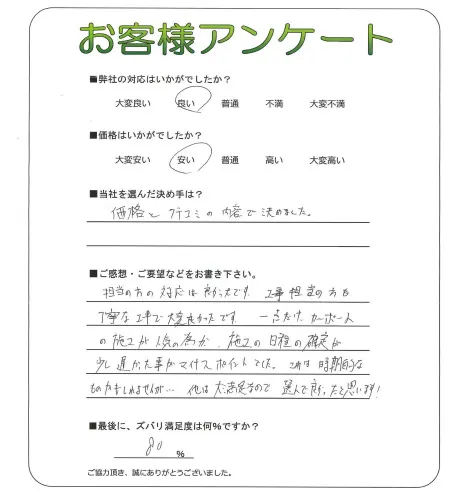 お客様アンケート
■弊社の対応はいかがでしたか?
大変良い 良い 普通 不満 大変不満
■価格はいかがでしたか?
大変安い 安い 普通 高い 大変高い
■当社を選んだ決め手は?
価格と クチコミの内容で決めました。
■ご感想・ご要望などをお書き下さい。
担当の方の対応は良かったです 工事担当の方も
丁寧な工事で大変良かったです 一点だけ、カーポート
の施工が人気の為か、施工の日程の確定が
少し遅かった事がマイナスポイントでした。これは時期的な
ものかもしれませんが… 他は大満足なので 選んで良かったと思います!
■最後に、ズバリ満足度は何%ですか?
80 %
ご協力頂き、誠にありがとうございました。